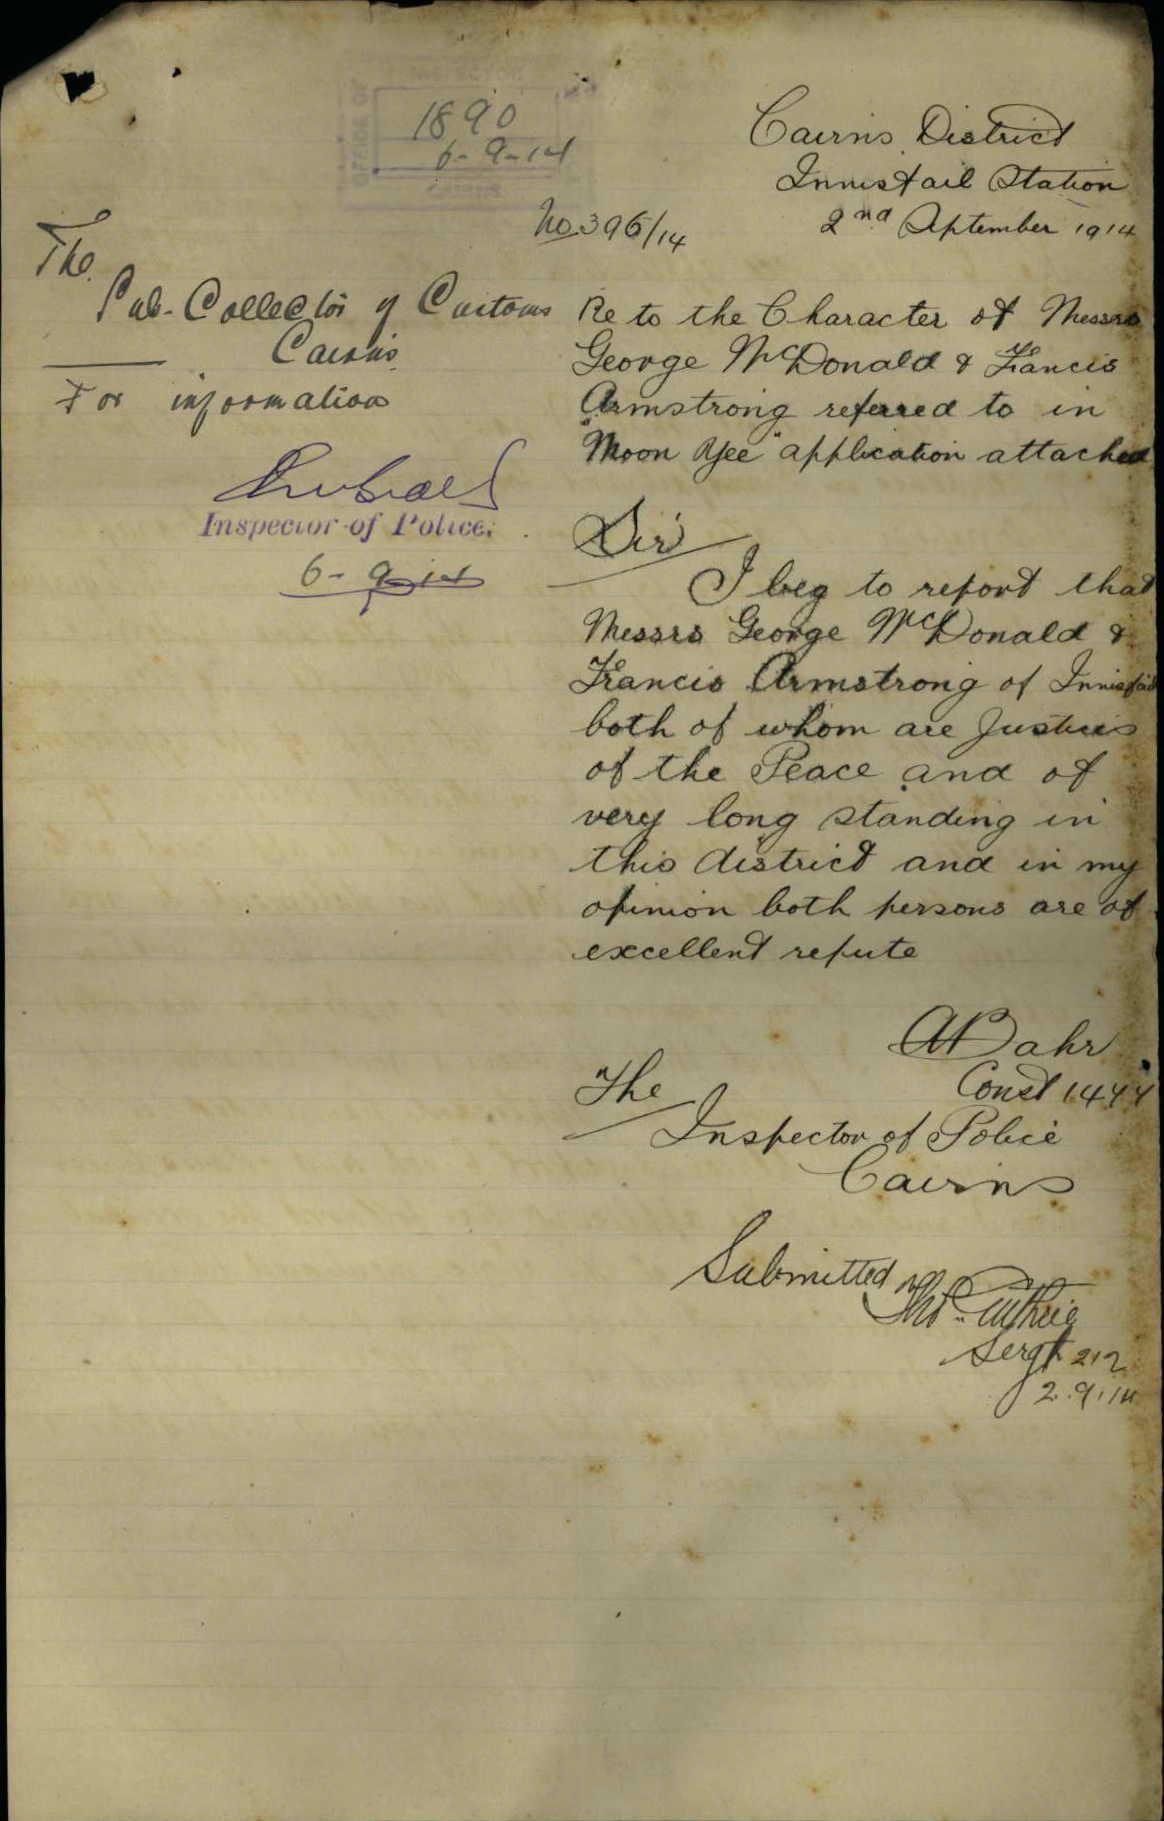 1890
6-9-14
Cairns District
Innisfail Station
2nd September 1914
No 396/14
The
Sub-Collector of Customs
Cairns
For information
Inspector of Police.
6-9-14
Re to the Character of Messrs
George McDonald & Francis
Armstrong referred to in
"Moon Yee" application attached
Sir
I beg to report that
Messrs George McDonald &
Francis Armstrong of Innisfail
both of whom are Justices
of the Peace and of
very long standing in
this district and in my
opinion both persons are of
excellent repute
A Bahr
Const 1444
The
Inspector of Police
Cairns
Submitted
Thos. Guthrie
Sergt 212
2.9.14